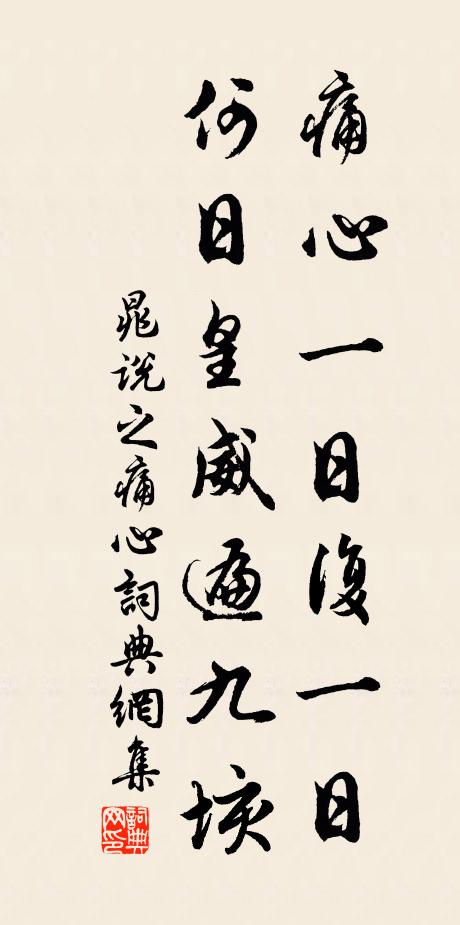 痛心一日復一日
何日皇威遍九垓
晁說之痛心詞典網集
詞典
网印